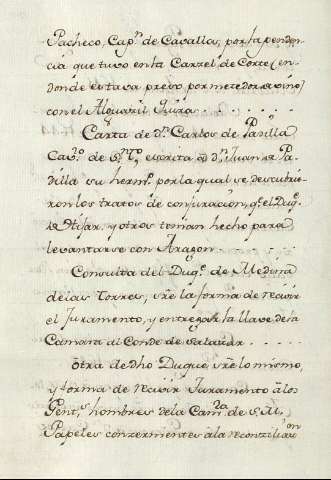 Pacheco, Cap.n de Cavallos, por la penden-
cia que tuvo en la Carzel de Corte (en
donde estava preso por metedor de vino)
con el Alguazil Jura
Carta de dn. Carlos de Padilla
Cav.o de S.n Tt.o, escrita a D.n Juan de Pa-
dilla su herm.o por la qual se descubrie-
ron los tratos de conjuracion, q.e el Duq.e
de Hijar, y otros tenian hecho para
levantarse con Aragon.
Consulta del Duq.e de Medina
de las Torres, sre la forma de recivir
el Juramento, y entregar la llave de la
Camara al Conde de Salazar
Otra de dho Duque sre lo mismo,
y forma de recivir Juramento à los
Gent.s hombres de la Cam.ra de S. M.
Papeles conzernientes à la reconziliaz.on